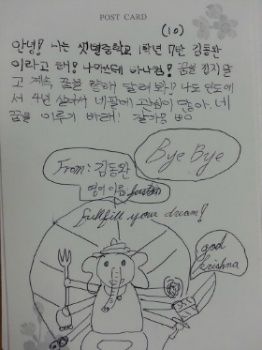 POST CARD
(10)
안녕! 나는 샛별중학교 1학년 7반 김동완
이라고 해! 나 커서
고 계속 꿈을 향해 달려봐! 나도 인도에
서 4년 살아서 네팔에 관심이 많아. 네
꿈을 이루기 바래!
Bye Bye
From: 김동완
영어이름
fullfill your dream!
god
krishna